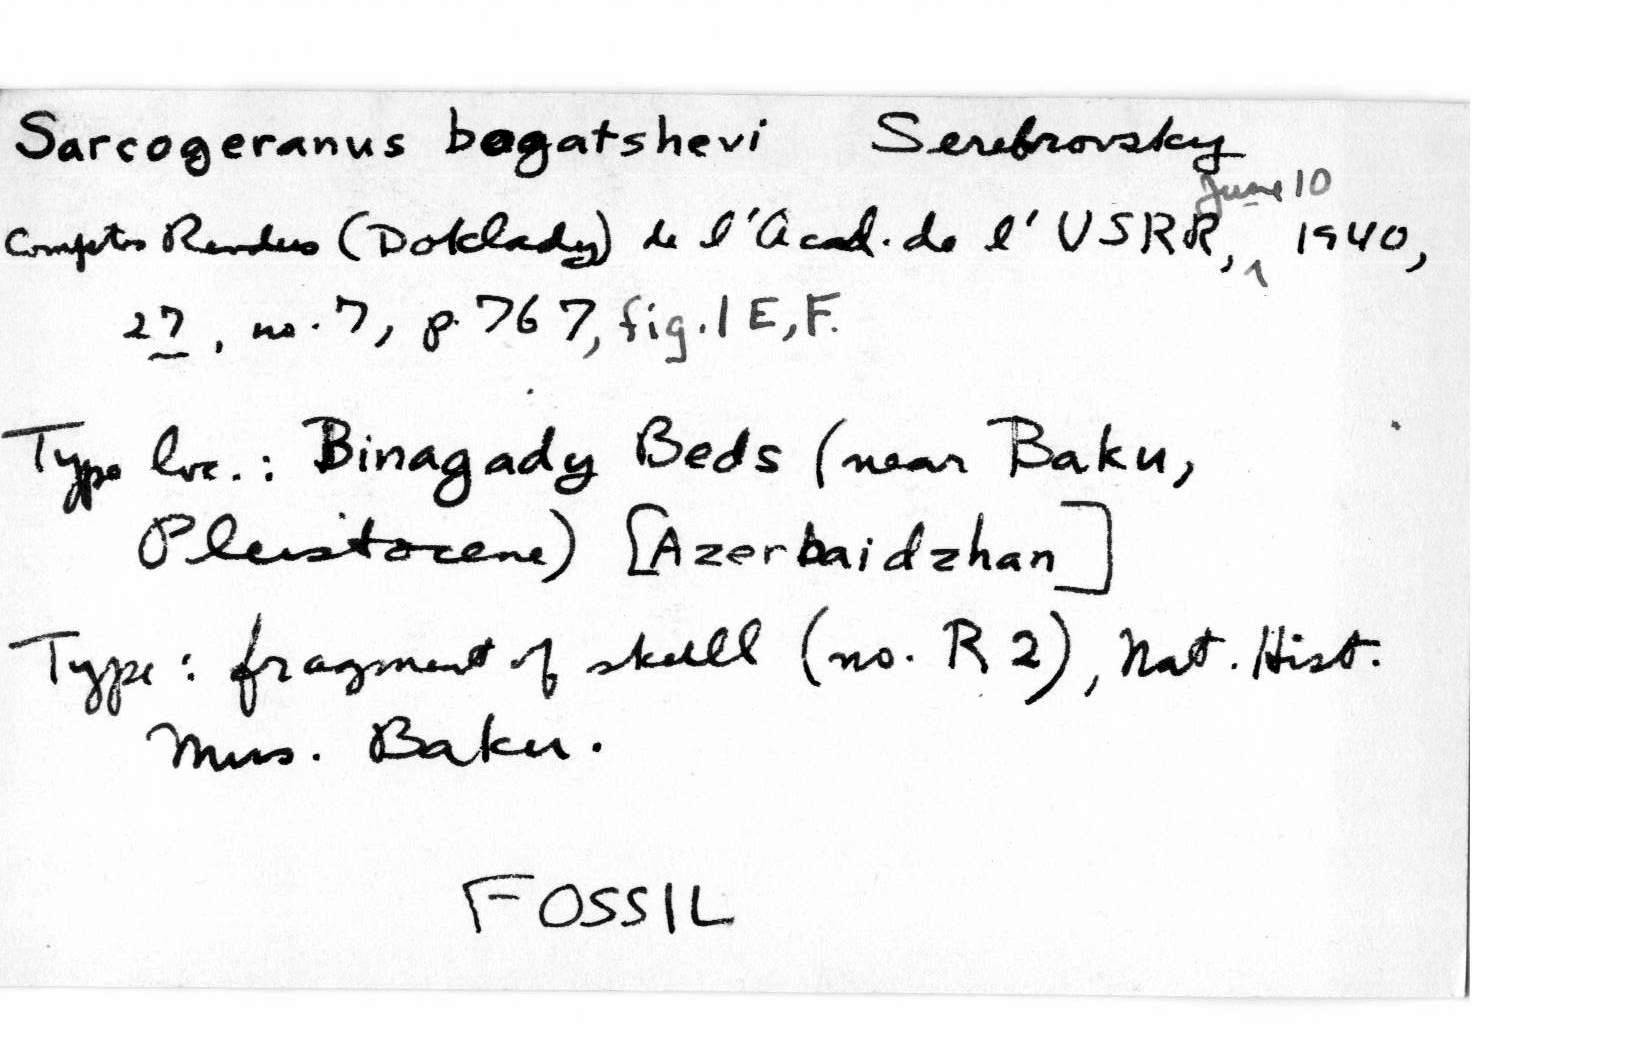 Sarcogeranus bogatshevi Serebrovsky
Comptes Rendus (Doklady) de l'Acad. de l'USRR, ^June 10 1940,
27, no. 7, p. 767, fig. 1 E, F.
Type loc.: Binagady Beds (near Baku,
Pleistocene) [Azerbaidzhan]
Type: fragment of skull (no. R 2), Nat. Hist.
Mus. Baku.
FOSSIL